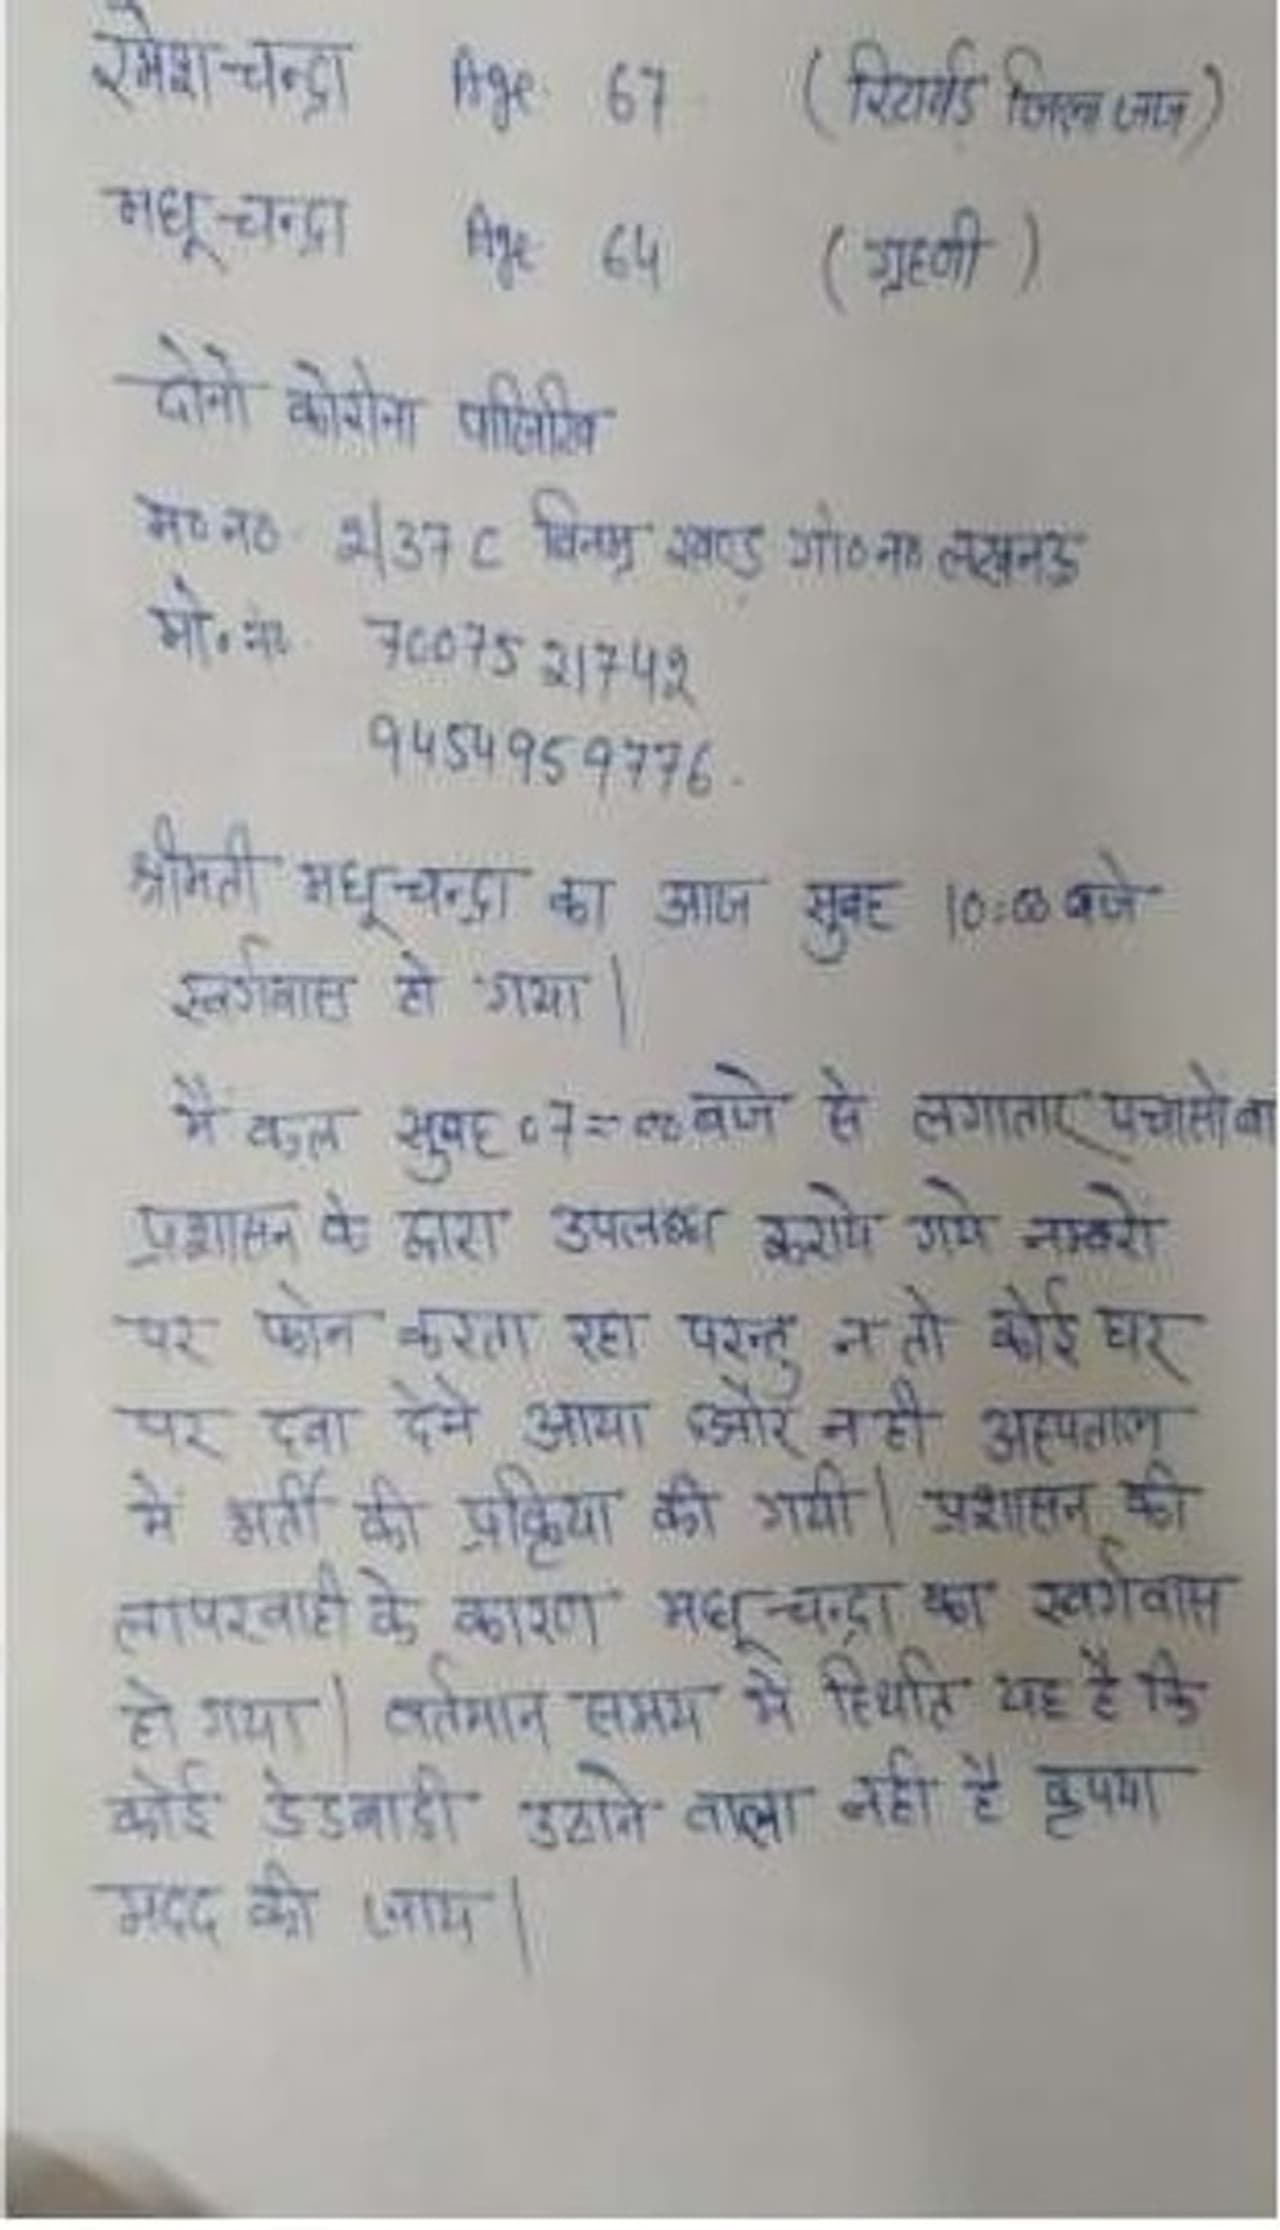 रमेश चन्द्रा Age 67 (रिटायर्ड जिला जज)
मधू चन्द्रा Age 64 (ग्रहणी)
दोनो कोरोना पॉजिटिव
म०न० 2/37 C विनम्र खण्ड गो०न० लखनऊ
मो.न. 7007521742
9454959776.
श्रीमती मधू चन्द्रा का आज सुबह 10:00 बजे
स्वर्गवास हो गया।
मै कल सुबह 07=00 बजे से लगातार पचासों बा
प्रशासन के द्वारा उपलब्ध कराये गये नम्बरो
पर फोन करता रहा परन्तु न तो कोई घर
पर दवा देने आया और नही अस्पताल
मे भर्ती की प्रक्रिया की गयी। प्रशासन की
लापरवाही के कारण मधू चन्द्रा का स्वर्गवास
हो गया। वर्तमान समय मे स्थिति यह है कि
कोई डेडबाडी उठाने वाला नही है कृपया
मदद की जाय।